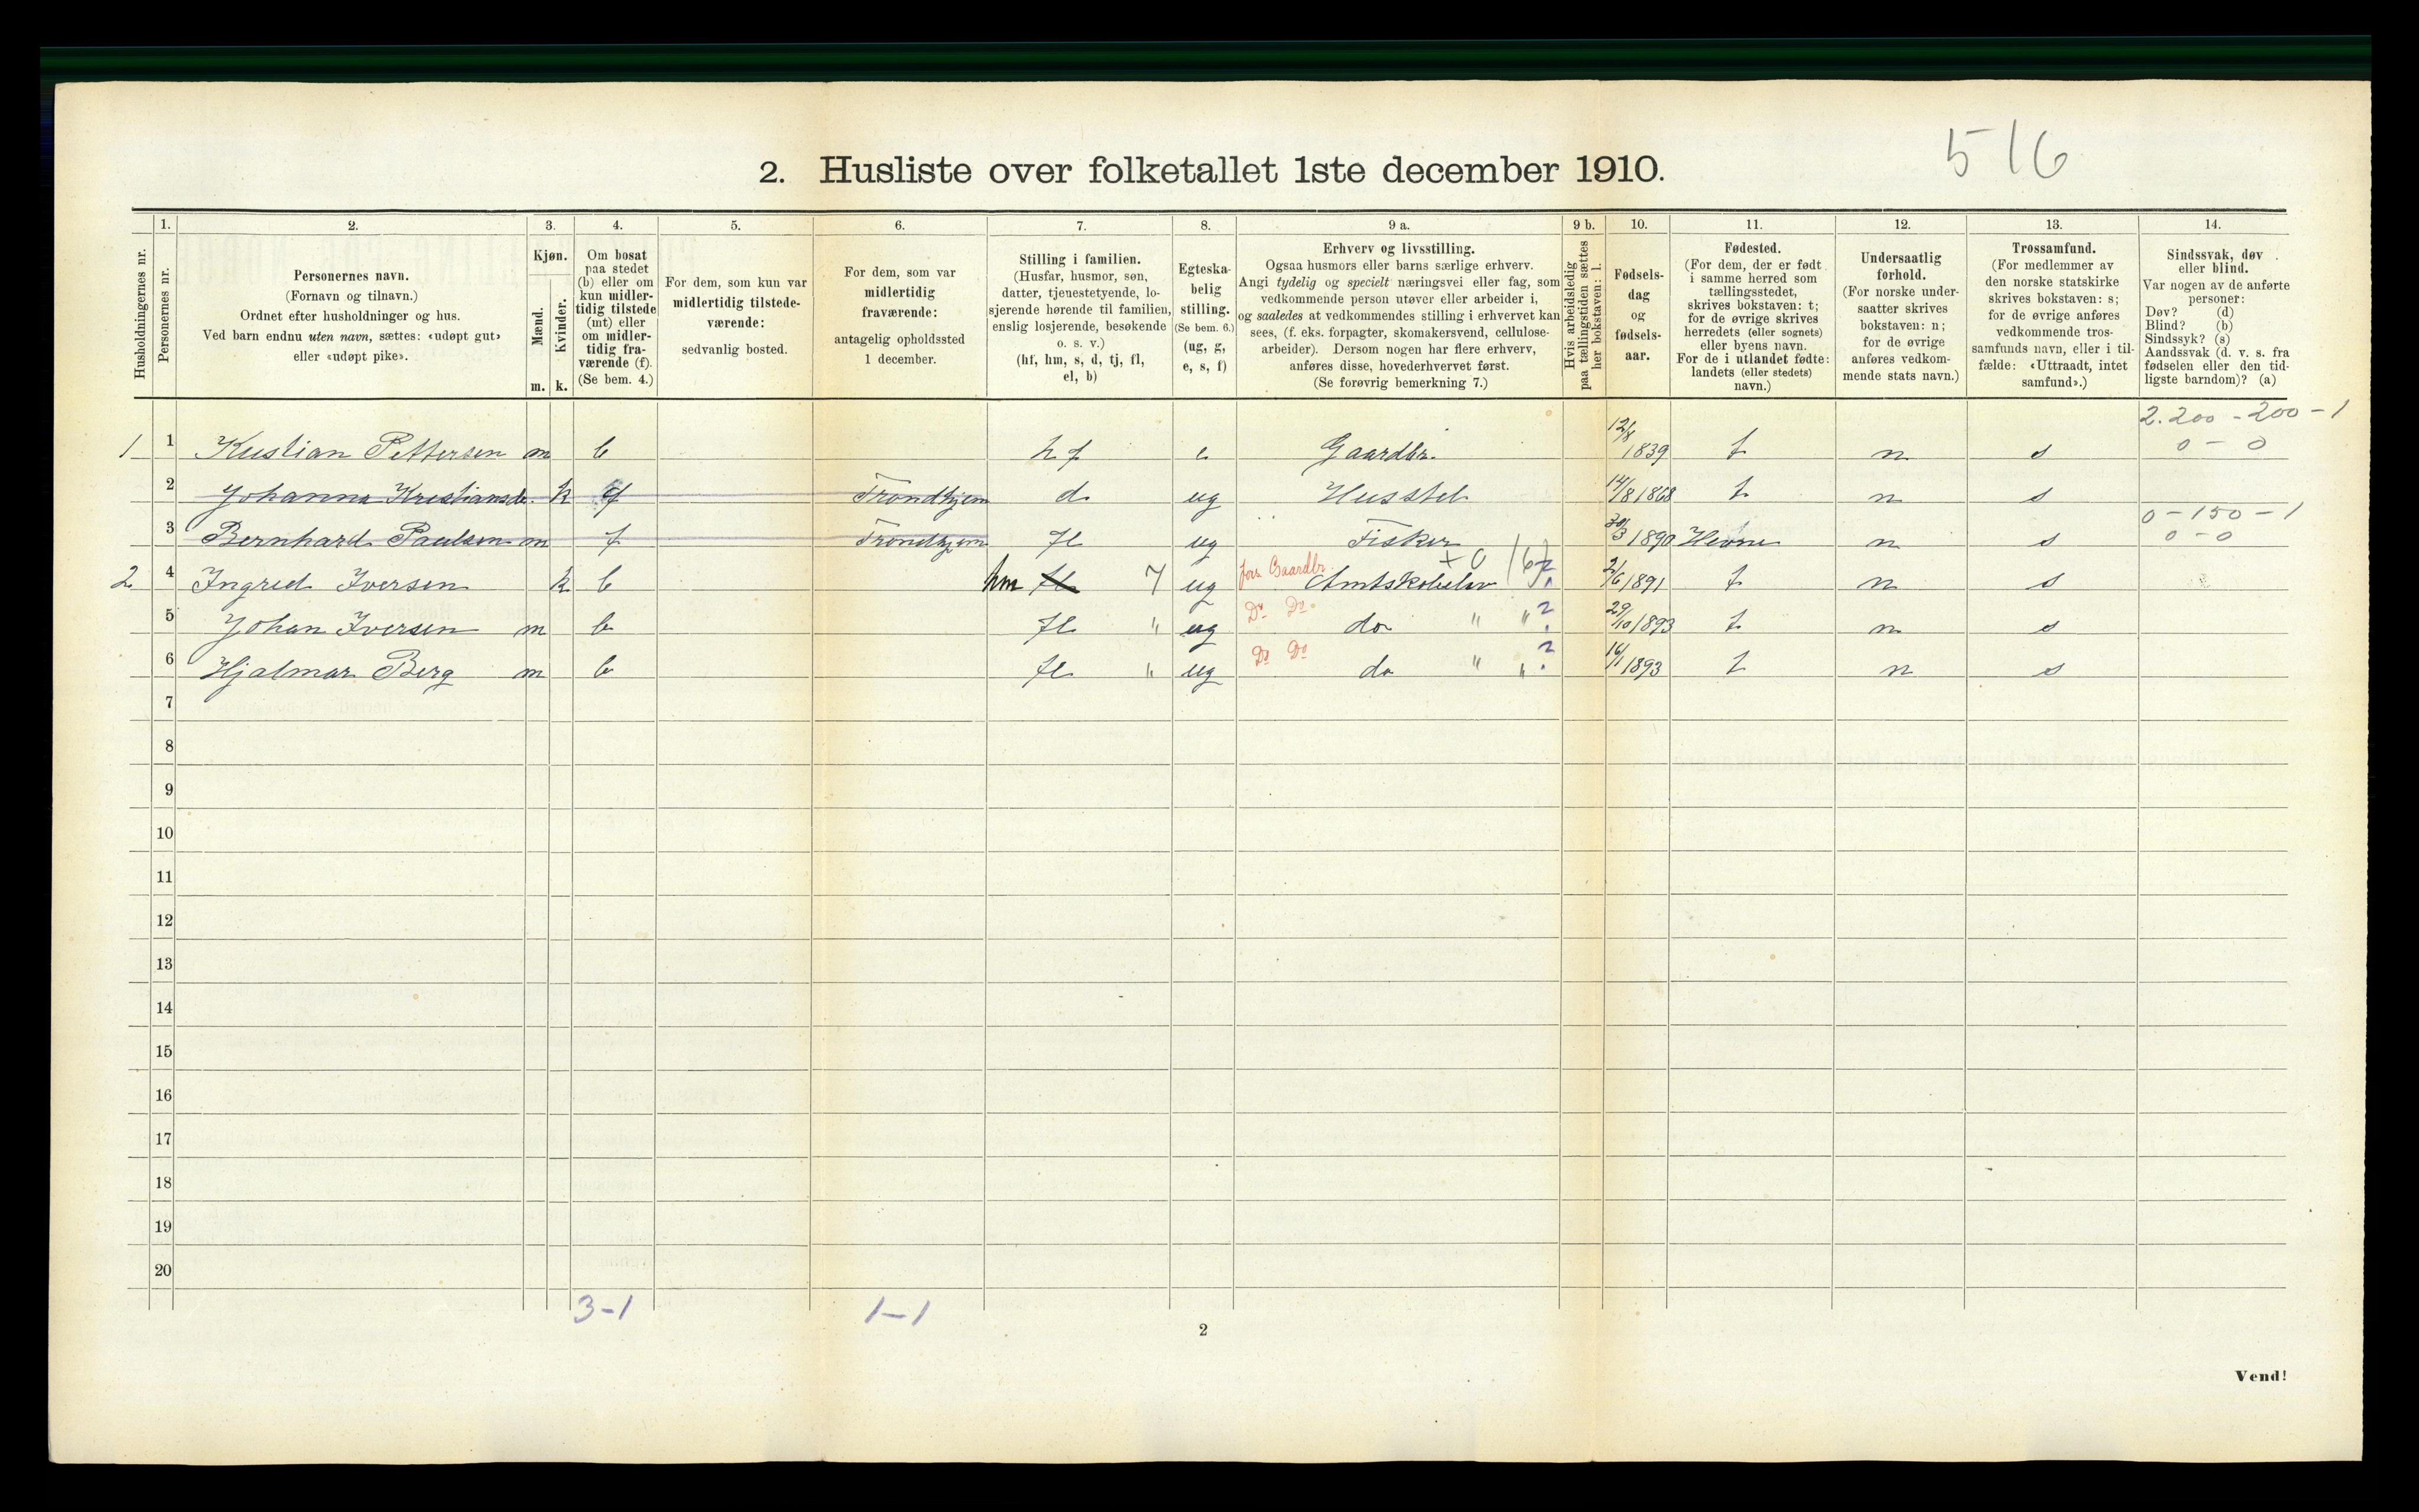 516
2. Husliste over folketallet 1ste december 1910.
Husholdningernes nr.
1.
Personernes nr.
2.
Personernes navn.
(Fornavn og tilnavn.)
Ordnet efter husholdninger og hus.
Ved barn endnu uten navn, sættes: «udøpt gut»
eller «udøpt pike».
3.
Kjøn.
Mænd.
Kvinder.
m. k.
4.
Om bosat
paa stedet
(b) eller om
kun midler-
tidig tilstede
(mt) eller
om midler-
tidig fra-
værende (f).
(Se bem. 4.)
5.
For dem, som kun var
midlertidig tilstede-
værende:
sedvanlig bosted.
6.
For dem, som var
midlertidig
fraværende:
antagelig opholdssted
1 december.
7.
Stilling i familien.
(Husfar, husmor, søn,
datter, tjenestetyende, lo-
sjerende hørende til familien,
enslig losjerende, besøkende
o. s. v.)
(hf, hm, s, d, tj, fl,
el, b)
8.
Egteska-
belig
stilling.
(Se bem. 6.)
(ug, g,
e, s, f)
9 a.
Erhverv og livsstilling.
Ogsaa husmors eller barns særlige erhverv.
Angi tydelig og specielt næringsvei eller fag, som
vedkommende person utøver eller arbeider i,
og saaledes at vedkommendes stilling i erhvervet kan
sees, (f. eks. forpagter, skomakersvend, cellulose-
arbeider). Dersom nogen har flere erhverv,
anføres disse, hovederhvervet først.
(Se forøvrig bemerkning 7.)
9 b.
Hvis arbeidsledig
paa tællingstiden sættes
her bokstaven: l.
10.
Fødsels-
dag
og
fødsels-
aar.
11.
Fødested.
(For dem, der er født
i samme herred som
tællingsstedet,
skrives bokstaven: t;
for de øvrige skrives
herredets (eller sognets)
eller byens navn.
For de i utlandet fødte:
landets (eller stedets)
navn.)
12.
Undersaatlig
forhold.
(For norske under-
saatter skrives
bokstaven: n;
for de øvrige
anføres vedkom-
mende stats navn.)
13.
Trossamfund.
(For medlemmer av
den norske statskirke
skrives bokstaven: s;
for de øvrige anføres
vedkommende tros-
samfunds navn, eller i til-
fælde: «Uttraadt, intet
samfund».)
14.
Sindssvak, døv
eller blind.
Var nogen av de anførte
personer:
Døv? (d)
Blind? (b)
Sindssyk? (s)
Aandssvak (d. v. s. fra
fødselen eller den tid-
ligste barndom)? (a)
2.200 - 200 - 1
1 1 Kristian Pettersen m b hf e Gaardbr. 12/8 1839 t n s 0 - 0
2 Johanna Kristiansdr. k f Trondhjem d ug Husstel 14/8 1868 t n s
0 - 150 - 1
3 Bernhard Paulsen m f Trondhjem fl ug Fisker 30/3 1890 Hevne n s 0 - 0
2 4 Ingrid Iversen k b hm fl 7 ug fors Gaardbr. Amtskoleelev ? 2/6 1891 t n s
5 Johan Iversen m b fl " ug Do Do do " " ? 29/10 1893 t n s
6 Hjalmar Berg m b fl " ug Do Do do " " ? 16/1 1893 t n s
7
8
9
10
11
12
13
14
15
16
17
18
19
20
3-1 1-1
2
Vend!